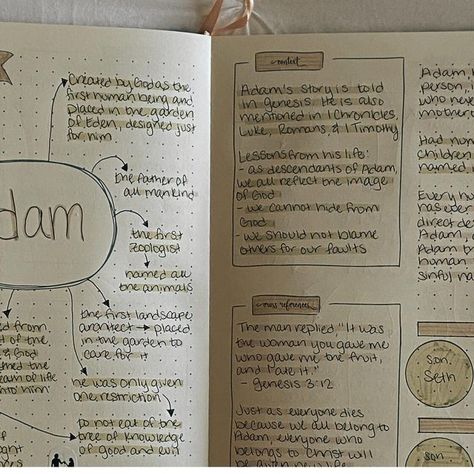 Created by God as the
first human being and
placed in the garden
of Eden, designed just
for him
the father of
all mankind
dam
the first
zoologist
named all
the animals
the first landscape
architect → placed
in the garden to
care for it
he was only given
one restriction
Do not eat of the
tree of knowledge
of good and evil
from
of the
& God
the
of life
him
context
Adam's story is told
in Genesis. He is also
mentioned in 1 Chronicles,
Luke, Romans, & 1 Timothy
Lessons from his life:
- as descendants of Adam,
we all reflect the image
of God
- we cannot hide from
God
- we should not blame
others for our faults
cross references
The man replied "It was
the woman you gave me
who gave me the fruit,
and I ate it."
- Genesis 3:12
Just as everyone dies
because we all belong to
Adam, everyone who
belongs to Christ will
be given new life
Adam
person,
who ne
mother
Had
children
named
Every hu
has ever
direct de
Adam,
Adam b
human
sinful n
Son
Seth
son